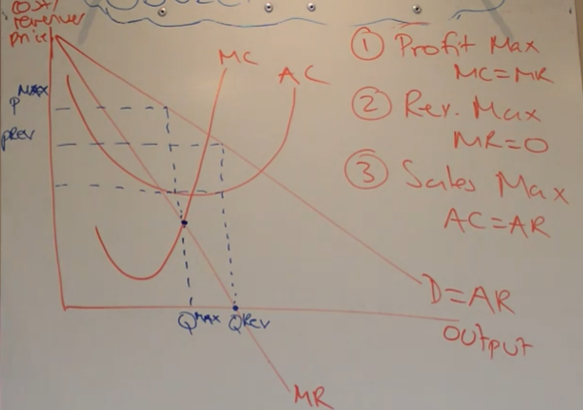 cost/
revenue/
price
MC
AC
P^MAX
P^REV
① Profit Max
MC=MR
② Rev. Max
MR=0
③ Sales Max
AC=AR
D=AR
Output
Q^MAX Q^Rev
MR